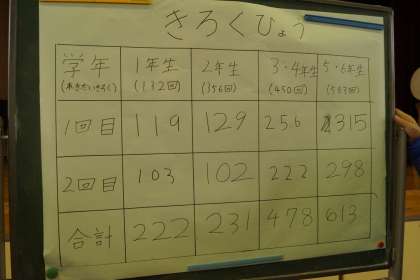 きろくひょう
学年 1年生 2年生 3・4年生 5・6年生
(332回) (356回) (450回) (583回)
1回目 119 129 256 315
2回目 103 102 222 298
合計 222 231 478 613